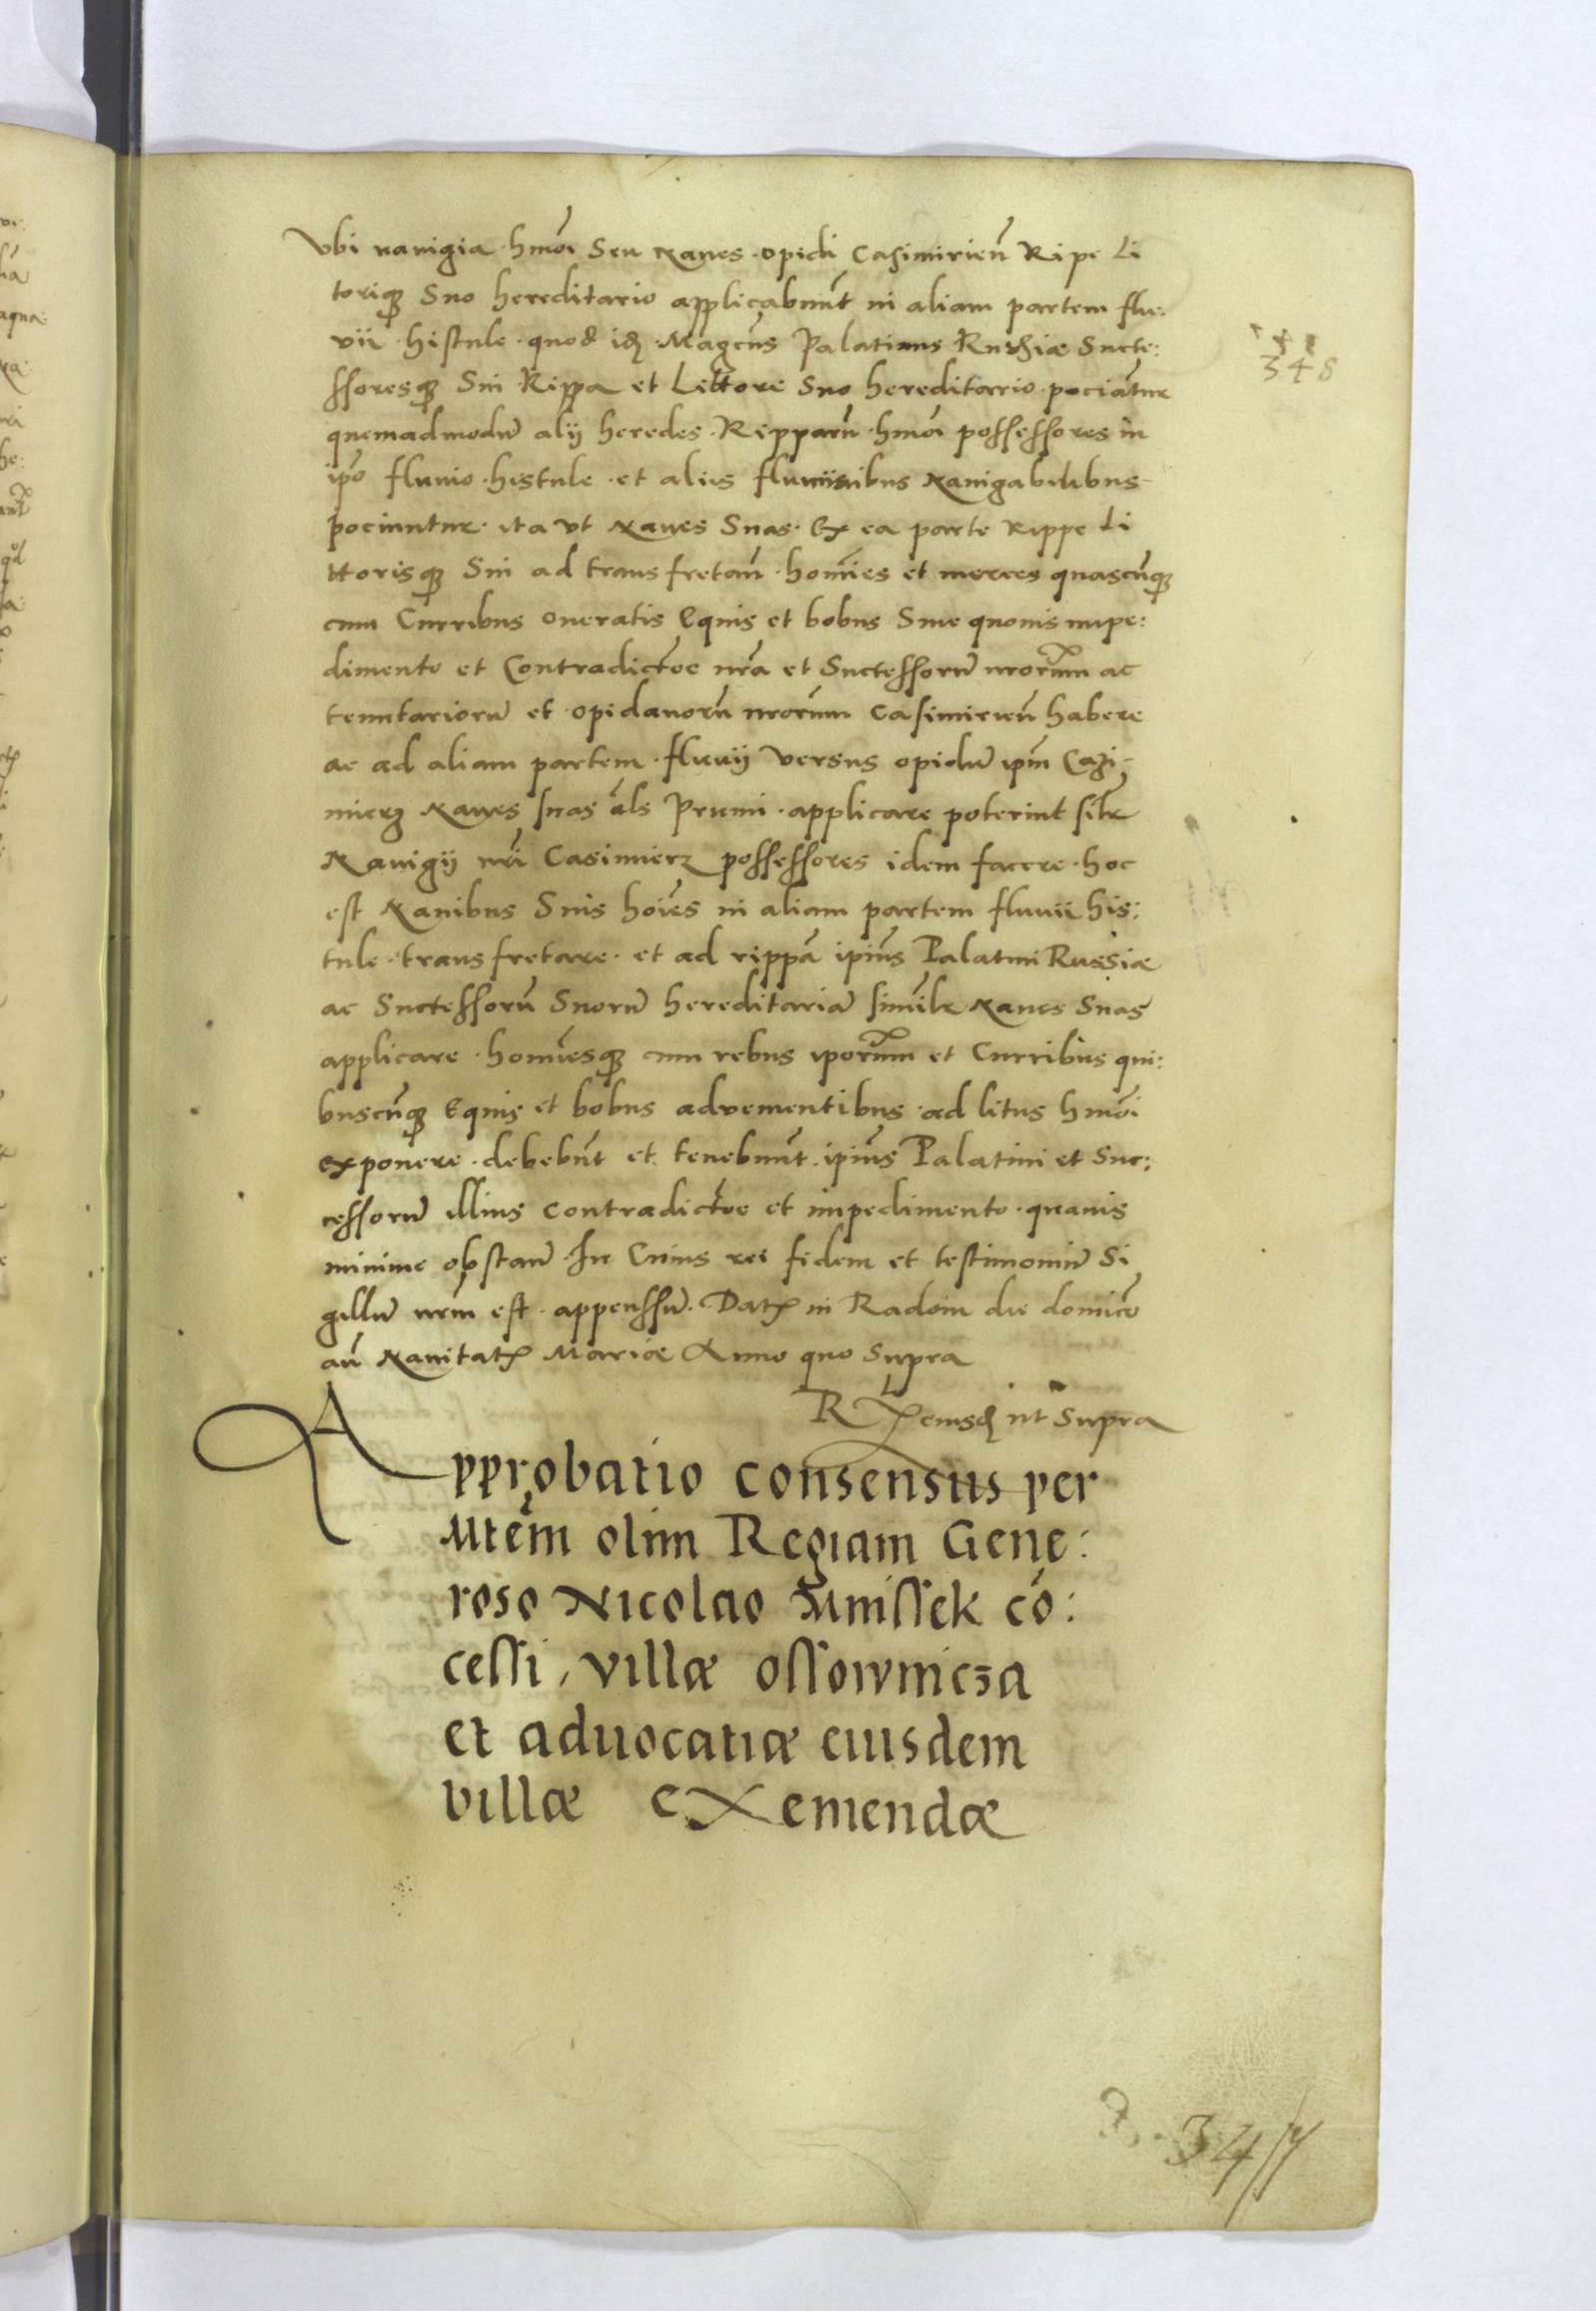 Vbi nauigia hmoi Seu Naues opidi Casimirien̄ Ripe Li
toriqʒ Suo hereditario applicabunt in aliam partem flu:
vii histule quod idʒ Magcus Palatinus Russiæ Succe:
348
ssoresqʒ Sui Rippa et Littore Suo hereditario pociātur
quemadmodū alij heredes Ripparū hmoi possessores in
ipō fluuio histule et aliis fluminibus Nauigabilibus
pociuntur ita vt Naues Suas Ex ea parte Rippe Li
ttorisqʒ Sui ad transfretan̄ homīes et merces quascūqʒ
cum Curribus oneratis Equis et bobus Sine quouis impe:
dimento et Contradictoē nrā et Successorū nrorum ac
tenutariorū et opidanorū nrorum Casimirien̄ habere
ac ad aliam partem fluuij versus opidū ipm̄ Cazi-
mierz Naues suas āls Prumi applicare poterint silr
Nauigij nrī Casimierz possessores idem facere hoc
est Nauibus Suis hoīes in aliam partem fluuii his:
tule transfretare et ad rippā ipius Palatini Russiæ
ac Successorū Suorū hereditariā similr Naues Suas
applicare homīesqʒ cum rebus iporum et Curribus qui:
buscūqʒ Equis et bobus aduenientibus ad litus hmoi
exponere debebūt et tenebunt ipius Palatini et Suc:
cessorū illius contradictoē et impedimento quauis
minime obstan̄ In Cuius rei fidem et testimoniū Si
gillū nrm̄ est appenssū Datʒ in Radom die domīco
an̄ Nauitatʒ Mariæ Anno quo Supra
R eiusdʒ ut Supra
Approbatio consensus per
Mtem olim Regiam Gene:
roso Nicolao Mnissek cō:
cessi, villæ ossownicza
et aduocatiæ eiusdem
villæ eXemendæ
347